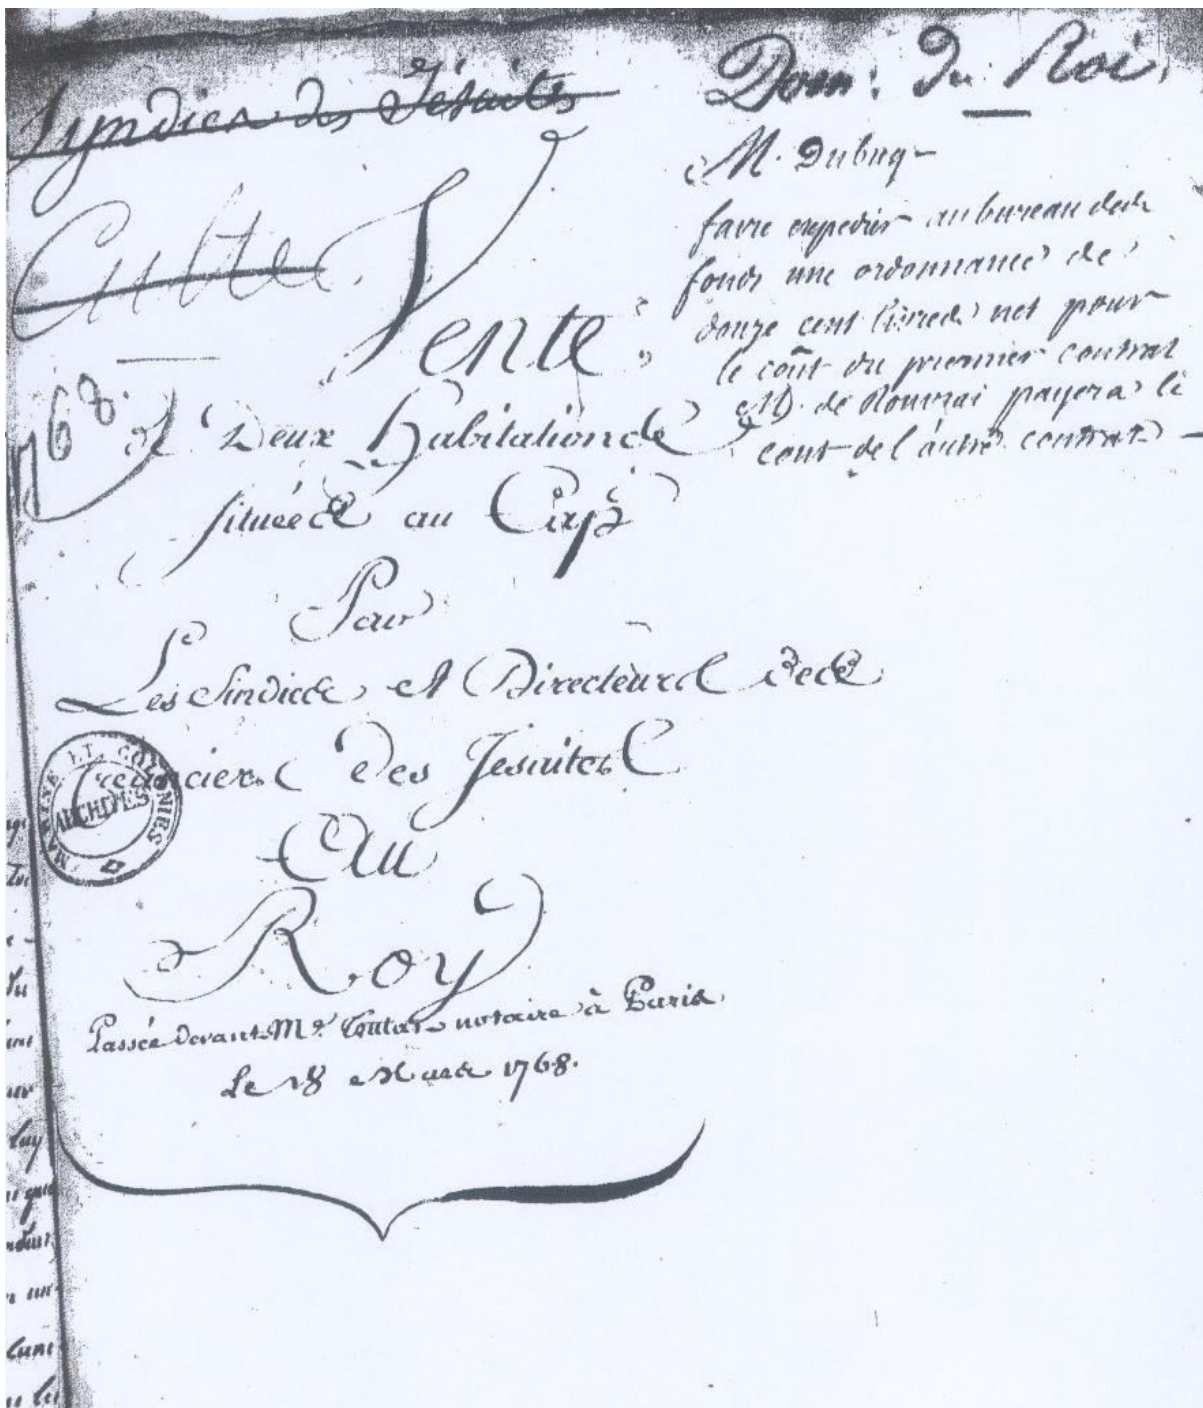 Syndics des Jésuites
Culte
1768.
Dom: du Roi.
M. Dubuq
faire expedier au bureau des
fonds une ordonnance de
douze cent livres net pour
le coût du premier contrat
M. de Rouvrai payera le
cout de l'autre contrat
Vente
de Deux Habitations
situées au Cap
Par
Les Sindics et Directeurs des
creanciers des Jesuites
Au
Roy
Passée devant Me notaire à Paris
Le 18 Mars 1768.
MARINE ET COLONIES
ARCHIVES
luy